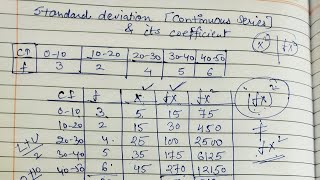 Standard deviation [Continuous Series]
& its coefficient
C.I 0-10 10-20 20-30 30-40 40-50
f 3 2 4 5 6
C.I f x fx fx²
0-10 3 5 15 75
10-20 2 15 30 450
20-30 4 25 100 2500
30-40 5 35 175 6125
40-50 6 45 270 12150